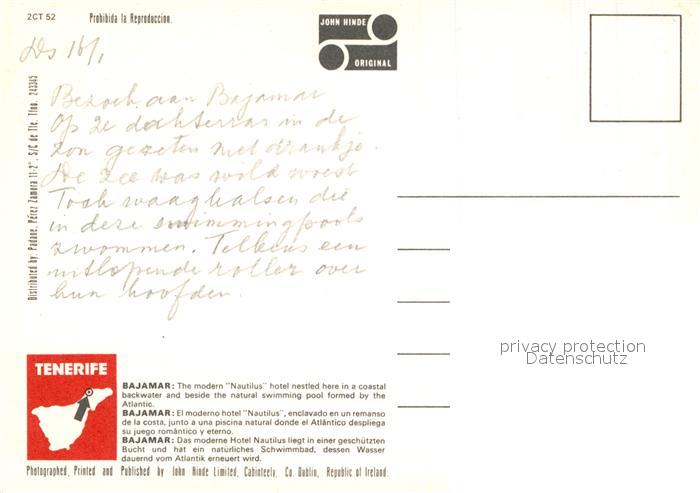 2CT 52
Prohibida la Reproduccion.
JOHN HINDE
ORIGINAL
Do 16/1
Bezoek aan Bajamar
Op 2e dakterras in de
zon gezeten met drankje.
De zee was wild woest
Toch waaghalsen die
in deze swimmingpools
zwommen. Telkens een
uitlopende roller over
hun hoofden.
Distributed by: Padane, Pérez Zamora 11-2°, S/C de Tfe. Tfno. 243345
privacy protection
Datenschutz
TENERIFE
BAJAMAR: The modern "Nautilus" hotel nestled here in a coastal
backwater and beside the natural swimming pool formed by the
Atlantic.
BAJAMAR: El moderno hotel "Nautilus", enclavado en un remanso
de la costa, junto a una piscina natural donde el Atlántico despliega
su juego romántico y eterno.
BAJAMAR: Das moderne Hotel Nautilus liegt in einer geschützten
Bucht und hat ein natürliches Schwimmbad, dessen Wasser
dauernd vom Atlantik erneuert wird.
Photographed, Printed and Published by John Hinde Limited, Cabinteely, Co. Dublin, Republic of Ireland.